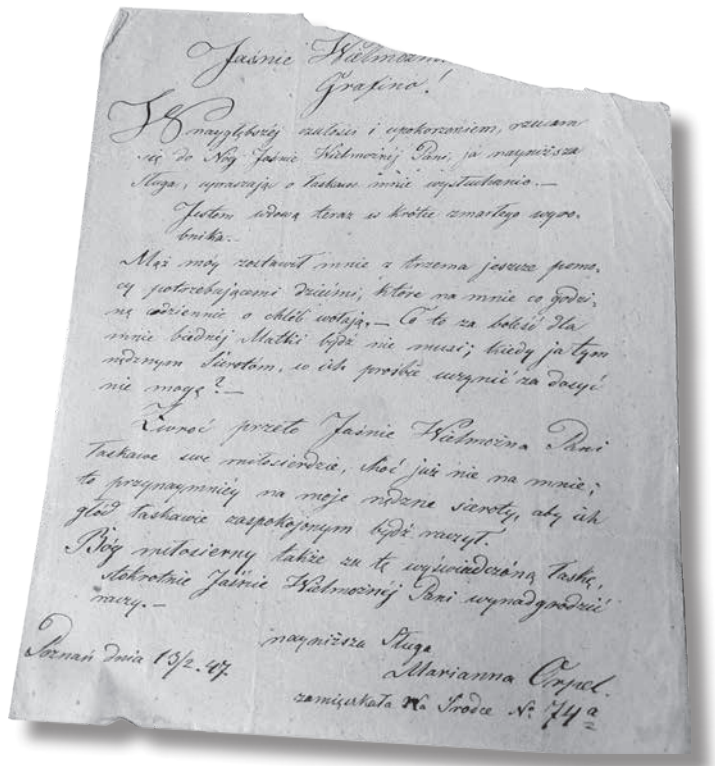 Jaśnie Wielmożn
Grafino!
W nayglębszéj czułości i upokorzeniem, rzucam
się do Nóg Jaśnie Wielmożnéj Pani, ja nayniższa
Sługa, upraszając o łaskawe mnie wysłuchanie.—
Jestem wdową teraz w krótce zmarłego wyro-
bnika.—
Mąż moy zostawił mnie z trzema jeszcze pomo-
cy potrzebującemi dziećmi, które na mnie co godzi-
nę codziennie o chléb wołają.— Co to za boleść dla
mnie biednéj Matki bydź nie musi; kiedy ja tym
nędznym Sierotom, w ich prośbie uczynić za dosyć
nie mogę?—
Zwroć przeto Jaśnie Wielmożna Pani
łaskawe swe miłosierdzie, choć już nie na mnie;
to przynaymniey na moje nędzne sieroty, aby ich
głód łaskawie zaspokojonym bydź raczył.
Bóg miłosierny także za tę wyświadczoną łaskę,
stokrotnie Jaśnie Wielmożnéj Pani wynadgrodzić
raczy.—
nayniższa Sługa
Poznań dnia 13/2. 47. Marianna Orpel.
zamięszkała Na Srodce No 74a